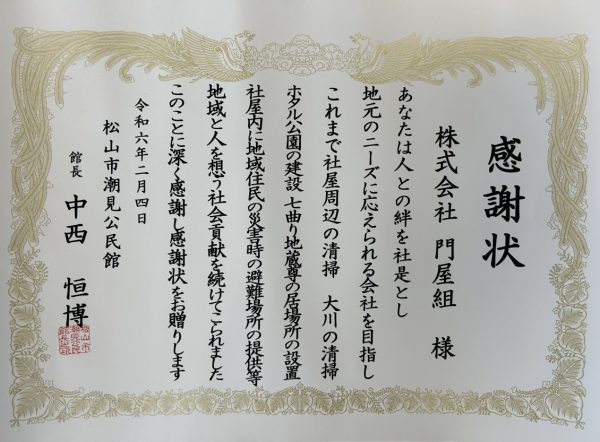 感謝状
株式会社 門屋組 様
あなたは人との絆を社是とし
地元のニーズに応えられる会社を目指し
これまで社屋周辺の清掃 大川の清掃
ホタル公園の建設 七曲り地蔵尊の居場所の設置
社屋内に地域住民の災害時の避難場所の提供等
地域と人を想う社会貢献を続けてこられました
このことに深く感謝し感謝状をお贈りします
令和六年二月四日
松山市潮見公民館
館長 中西 恒博